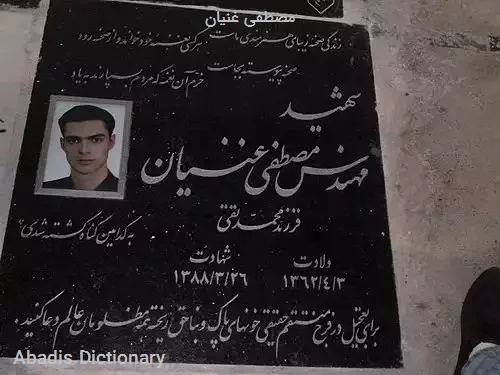 مصطفی غنیان
زندگی صحنه زیبای هنرمندی ماست هر کسی نغمه خود خواند و از صحنه رود
صحنه پیوسته بجاست خرم آن نغمه که مردم بسپارند به یاد
شهید
مهندس مصطفی غنیان
فرزند محمدتقی
به کدامین گناه کشته شدی؟
ولادت شهادت
۱۳۶۲/۴/۳ ۱۳۸۸/۳/۲۶
برای تعجیل در فرج منتقم حقیقی خونهای پاک و بناحق ریخته همه مظلومان عالم دعا کنید.
Abadis Dictionary